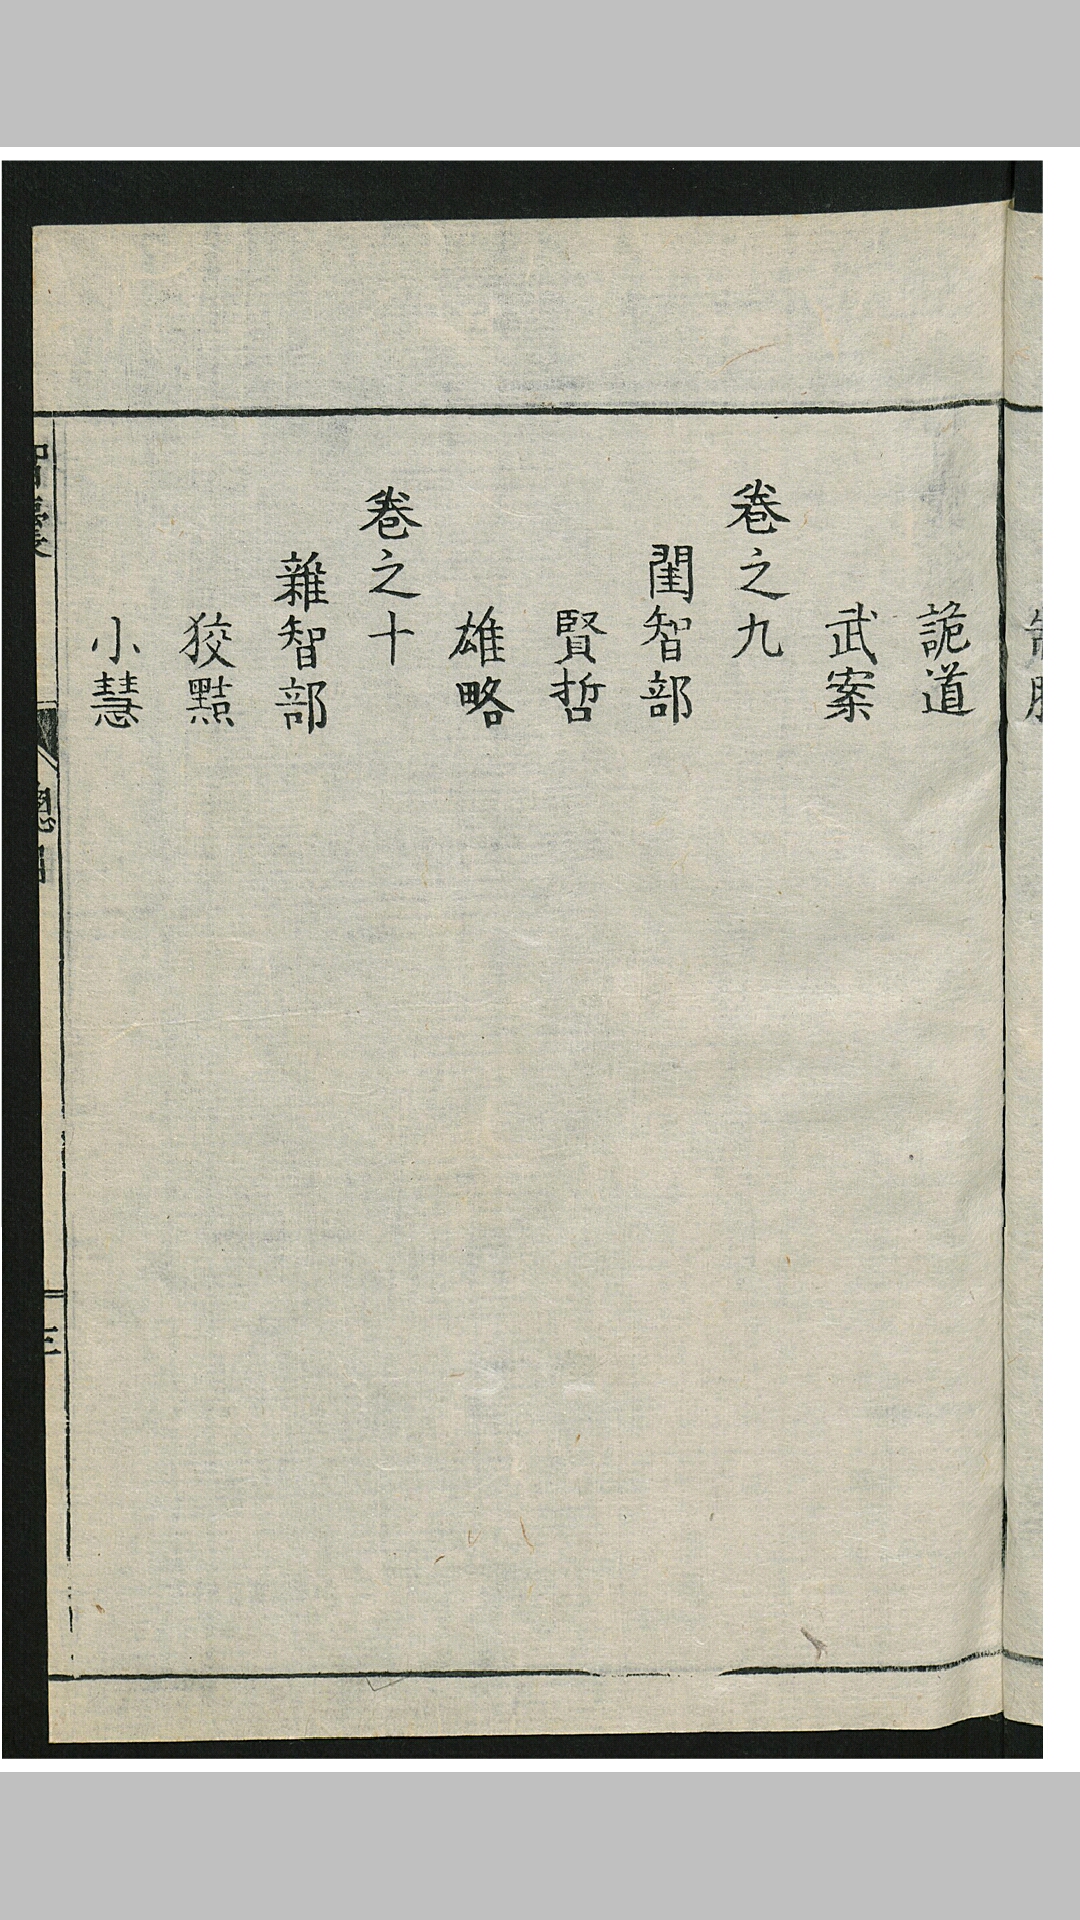 詭道
武案
卷之九
閨智部
賢哲
雄略
卷之十
雜智部
狡黠
小慧
智囊
總目
三